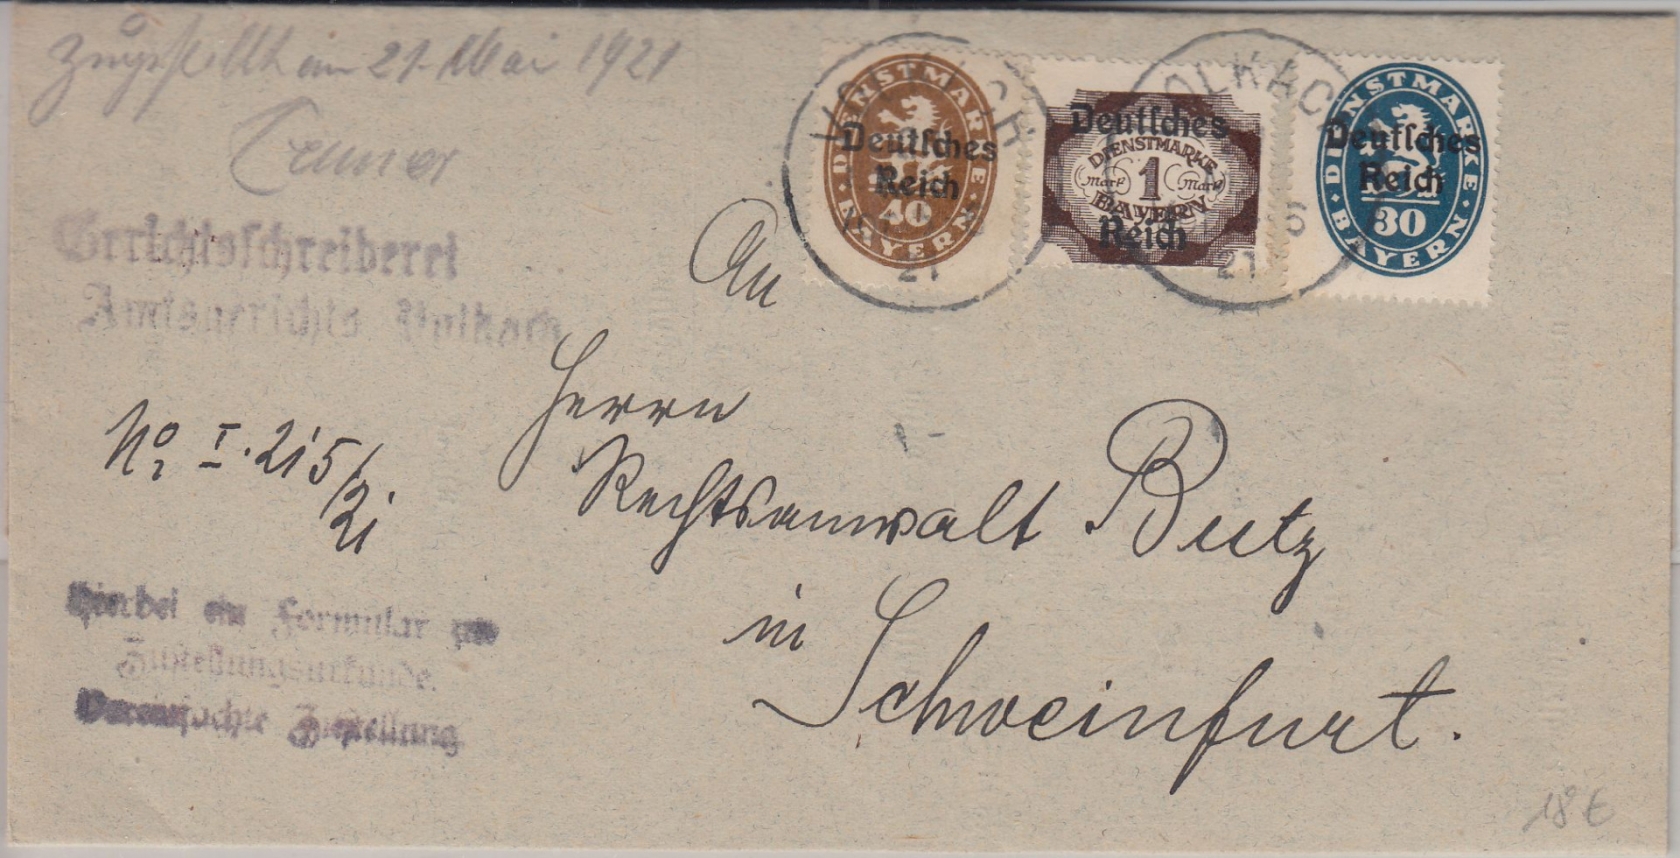 Zugestellt am 21. Mai 1921
VOLKACH
21
DIENSTMARKE
BAYERN
40
Deutsches
Reich
DIENSTMARKE
Mark 1 Mark
BAYERN
Deutsches
Reich
VOLKACH
21
DIENSTMARKE
BAYERN
30
Deutsches
Reich
Gerichtsschreiberei
Amtsgerichts Volkach
An
Herrn
Rechtsanwalt Butz
in
Schweinfurt.
No. I. 215/21
Hierbei ein Formular zur
Zustellungsurkunde.
Vereinfachte Zustellung
18 €